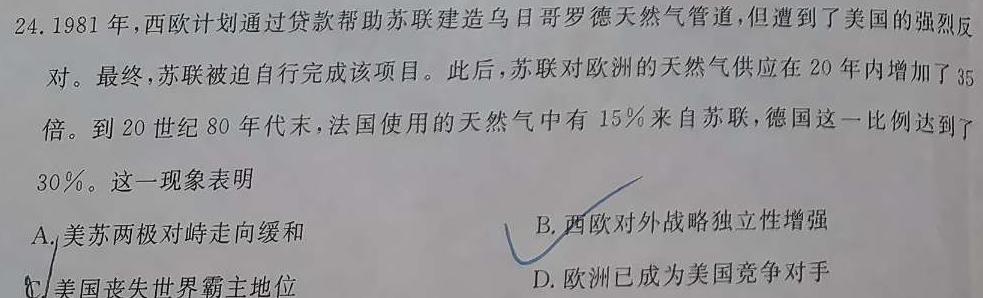 24. 1981 年,西欧计划通过贷款帮助苏联建造乌日哥罗德天然气管道,但遭到了美国的强烈反
对。最终,苏联被迫自行完成该项目。此后,苏联对欧洲的天然气供应在 20 年内增加了 35
倍。到 20 世纪 80 年代末,法国使用的天然气中有 15%来自苏联,德国这一比例达到了
30%。这一现象表明
A. 美苏两极对峙走向缓和
B. 西欧对外战略独立性增强
C. 美国丧失世界霸主地位
D. 欧洲已成为美国竞争对手